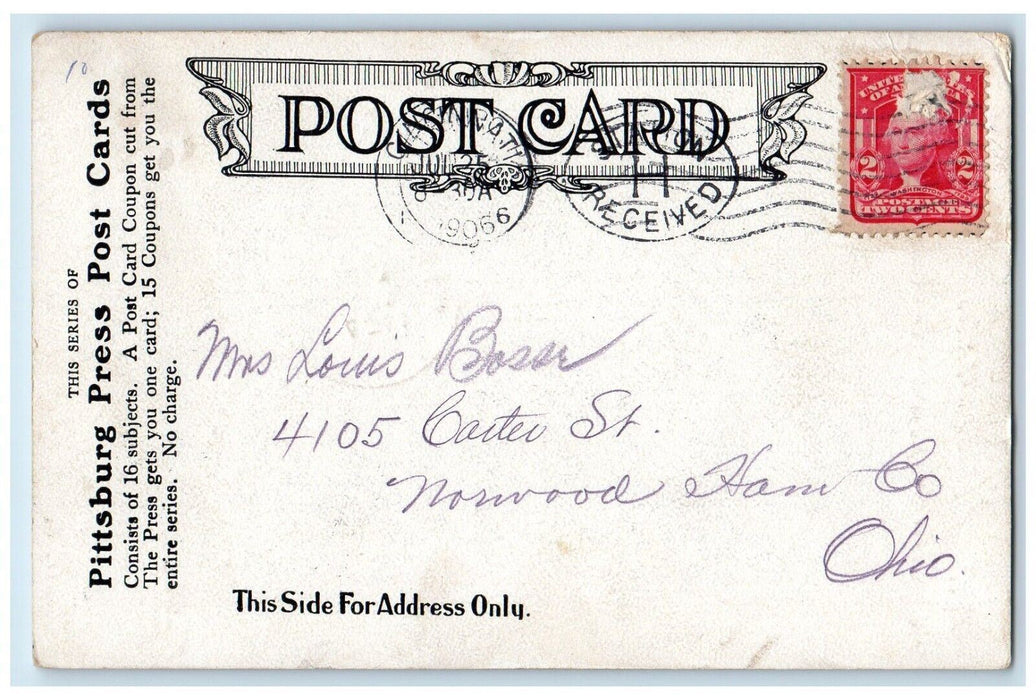 10
THIS SERIES OF
Pittsburg Press Post Cards
Consists of 16 subjects. A Post Card Coupon cut from
The Press gets you one card; 15 Coupons get you the
entire series. No charge.
POST CARD
1906
RECEIVED
UNITED STATES
OF AMERICA
2 2
WASHINGTON
POSTAGE
TWO CENTS
Mrs Louis Bosse
4105 Carter St.
Norwood Ham Co
Ohio.
This Side For Address Only.